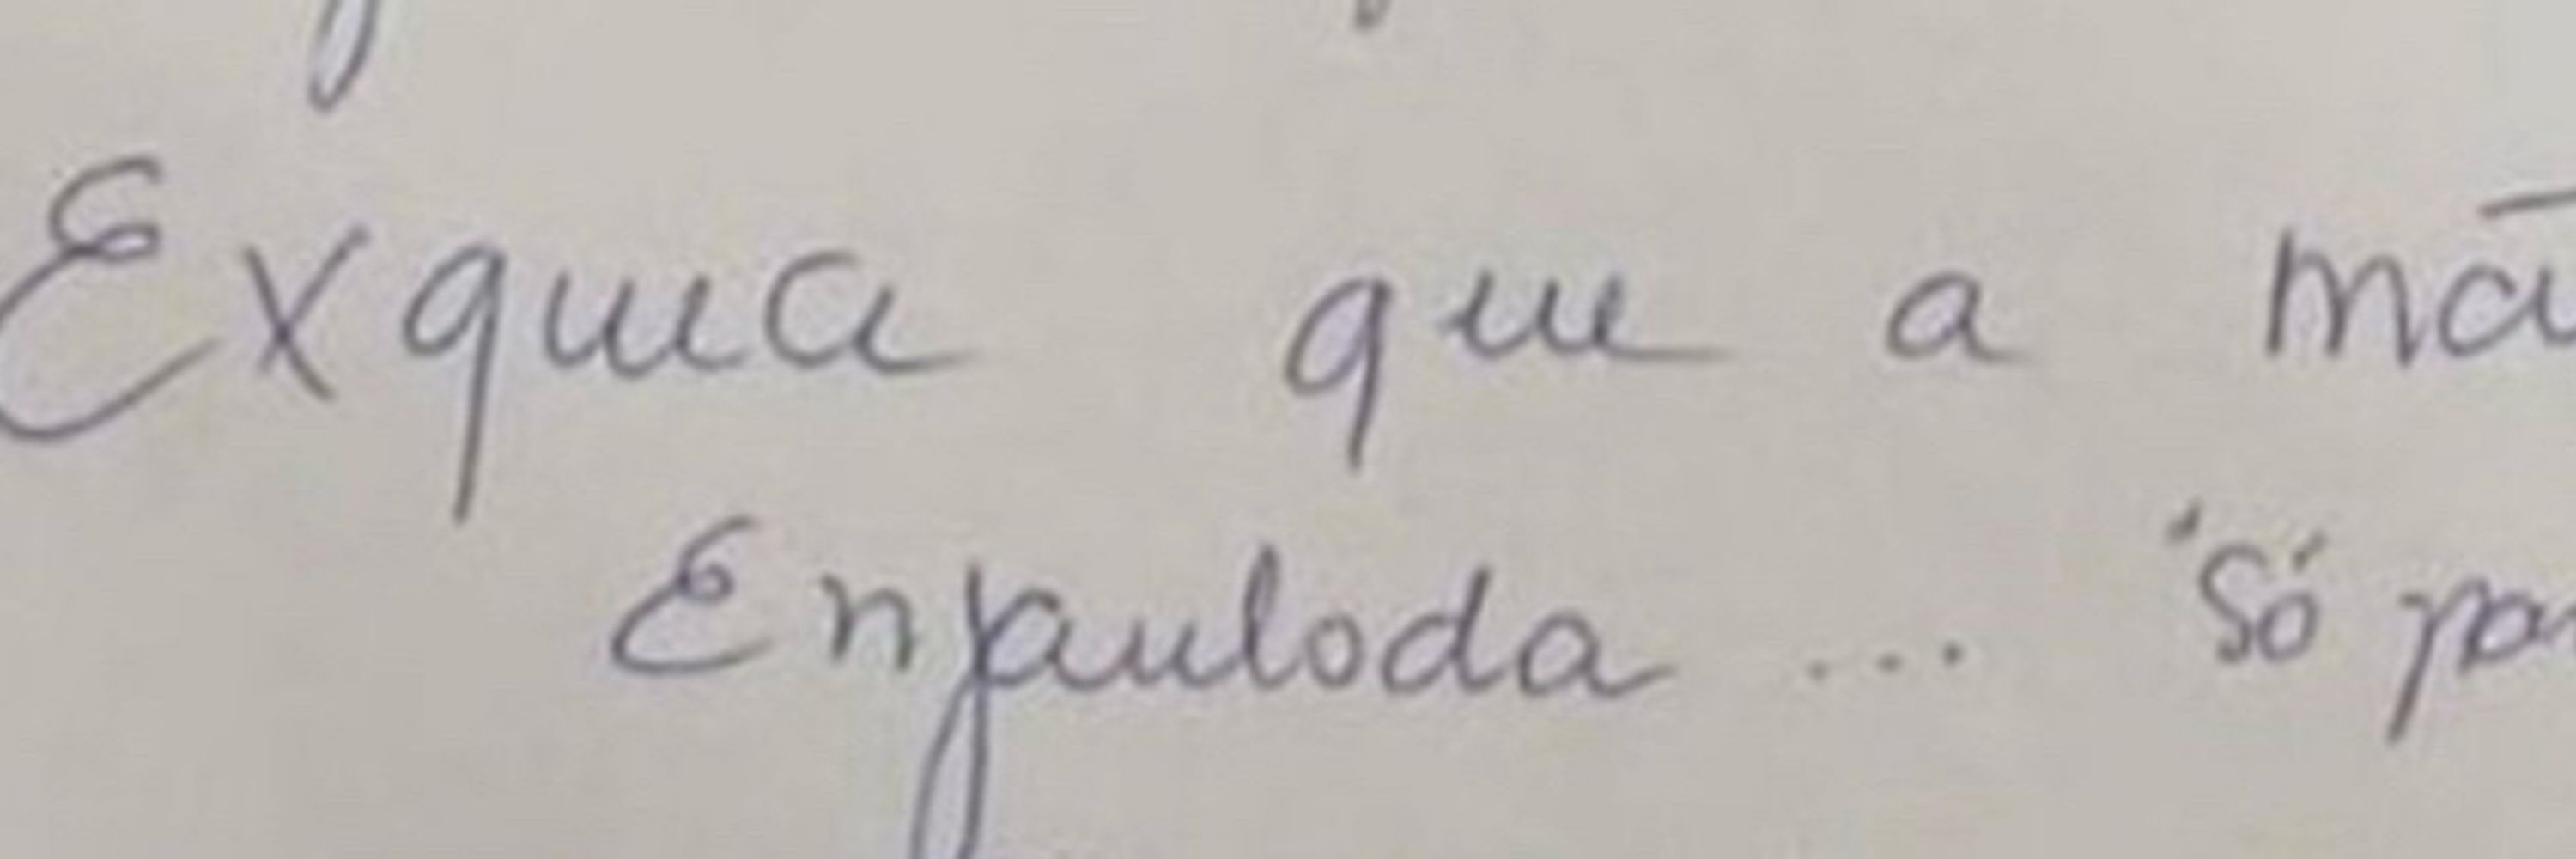 Exquia que a mã
Enjauloda ... "Só par